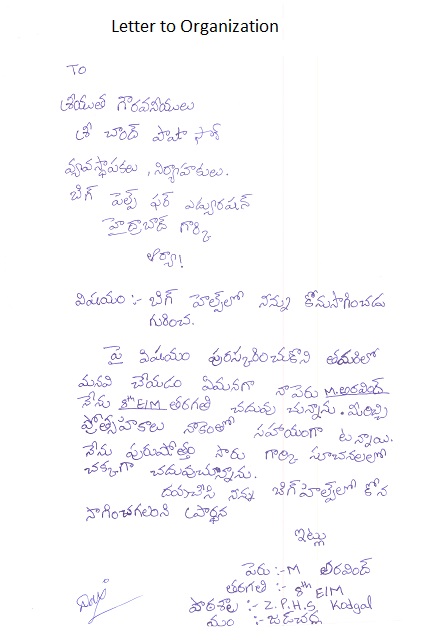 Letter to Organization
TO
శ్రీయుత గౌరవనీయులు
శ్రీ చాంద్ పాషా
వ్యవస్థాపకులు, నిర్వాహకులు.
బిగ్ హెల్ప్ ఫర్ ఎడ్యుకేషన్
హైద్రాబాద్ గార్కి
ఆర్యా!
విషయం :- బిగ్ హెల్ప్‌లో నన్ను కొనసాగించడు
గురించి.
పై విషయం పురస్కరించుకొని తమరితో
మనవి చేయడం ఏమనగా నాపేరు M.అరవింద్
నేను 8th E/M తరగతి చదువు చున్నాను. మీరిచ్చి
ప్రోత్సాహకాలు నాకెంతో సహాయంగా ఉన్నాయి.
నేను పురుషోత్తం సారు గార్కి సూచనలలో
చక్కగా చదువుచున్నాను.
దయచేసి నన్ను బిగ్‌హెల్ప్‌లో కొన
సాగించగలరని ప్రార్థన
ఇట్లు
పేరు :- M అరవింద్
తరగతి :- 8th E/M
పాఠశాల :- Z.P.H.S, Kodgal
మం :- జడ్చర్ల